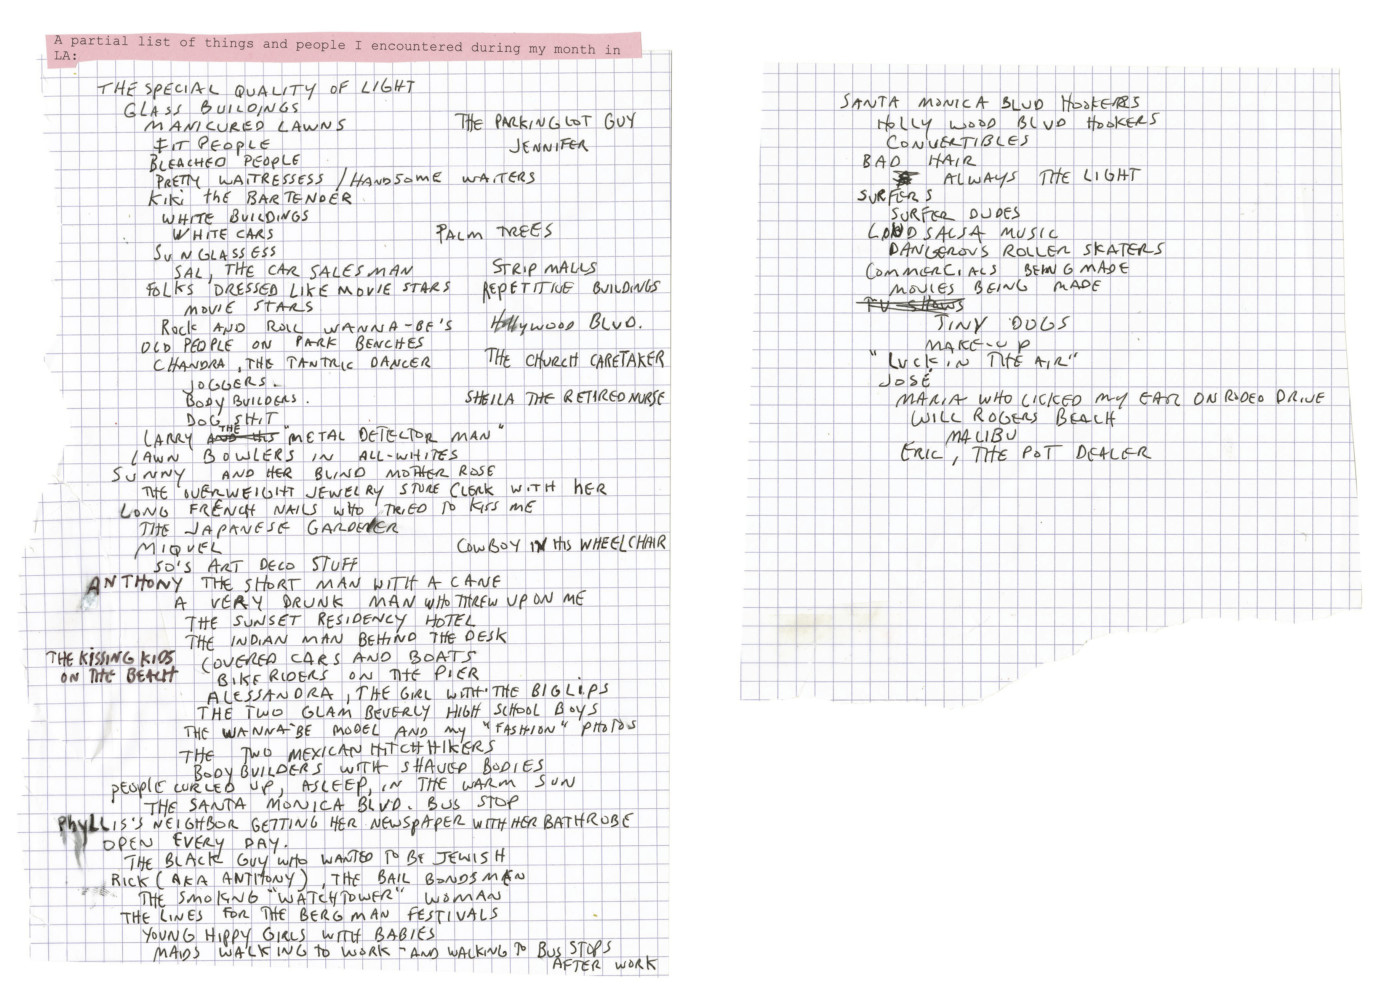 A partial list of things and people I encountered during my month in
LA:
THE SPECIAL QUALITY OF LIGHT
GLASS BUILDINGS
MANICURED LAWNS
THE PARKING LOT GUY
FIT PEOPLE
JENNIFER
BLEACHED PEOPLE
PRETTY WAITRESSESS / HANDSOME WAITERS
KIKI THE BARTENDER
WHITE BUILDINGS
WHITE CARS
PALM TREES
SUNGLASSESS
SAL, THE CAR SALESMAN
STRIP MALLS
FOLKS DRESSED LIKE MOVIE STARS
REPETITIVE BUILDINGS
MOVIE STARS
ROCK AND ROLL WANNA-BE'S
HOLLYWOOD BLVD.
OLD PEOPLE ON PARK BENCHES
CHANDRA, THE TANTRIC DANCER
THE CHURCH CARETAKER
JOGGERS.
BODY BUILDERS.
SHEILA THE RETIRED NURSE
DOG SHIT
LARRY AND HIS THE "METAL DETECTOR MAN"
LAWN BOWLERS IN ALL-WHITES
SUNNY AND HER BLIND MOTHER ROSE
THE OVERWEIGHT JEWELRY STORE CLERK WITH HER
LONG FRENCH NAILS WHO TRIED TO KISS ME
THE JAPANESE GARDENER
MIQUEL
COWBOY IN HIS WHEELCHAIR
50'S ART DECO STUFF
ANTHONY THE SHORT MAN WITH A CANE
A VERY DRUNK MAN WHO THREW UP ON ME
THE SUNSET RESIDENCY HOTEL
THE INDIAN MAN BEHIND THE DESK
THE KISSING KIDS
ON THE BEACH
COVERED CARS AND BOATS
BIKE RIDERS ON THE PIER
ALESSANDRA, THE GIRL WITH THE BIG LIPS
THE TWO GLAM BEVERLY HIGH SCHOOL BOYS
THE WANNA-BE MODEL AND MY "FASHION" PHOTOS
THE TWO MEXICAN HITCHHIKERS
BODYBUILDERS WITH SHAVED BODIES
PEOPLE CURLED UP, ASLEEP, IN THE WARM SUN
THE SANTA MONICA BLVD. BUS STOP
PHYLLIS'S NEIGHBOR GETTING HER NEWSPAPER WITH HER BATHROBE
OPEN EVERY DAY.
THE BLACK GUY WHO WANTED TO BE JEWISH
RICK (AKA ANTHONY), THE BAIL BONDSMAN
THE SMOKING "WATCHTOWER" WOMAN
THE LINES FOR THE BERGMAN FESTIVALS
YOUNG HIPPY GIRLS WITH BABIES
MAIDS WALKING TO WORK - AND WALKING TO BUS STOPS
AFTER WORK
SANTA MONICA BLVD HOOKERS
HOLLYWOOD BLVD HOOKERS
CONVERTIBLES
BAD HAIR
ALWAYS THE LIGHT
SURFERS
SURFER DUDES
LOUD SALSA MUSIC
DANGEROUS ROLLER SKATERS
COMMERCIALS BEING MADE
MOVIES BEING MADE
TV SHOWS
TINY DOGS
MAKE-UP
"LUCK IN THE AIR"
JOSÉ
MARIA WHO LICKED MY EAR ON RODEO DRIVE
WILL ROGERS BEACH
MALIBU
ERIC, THE POT DEALER